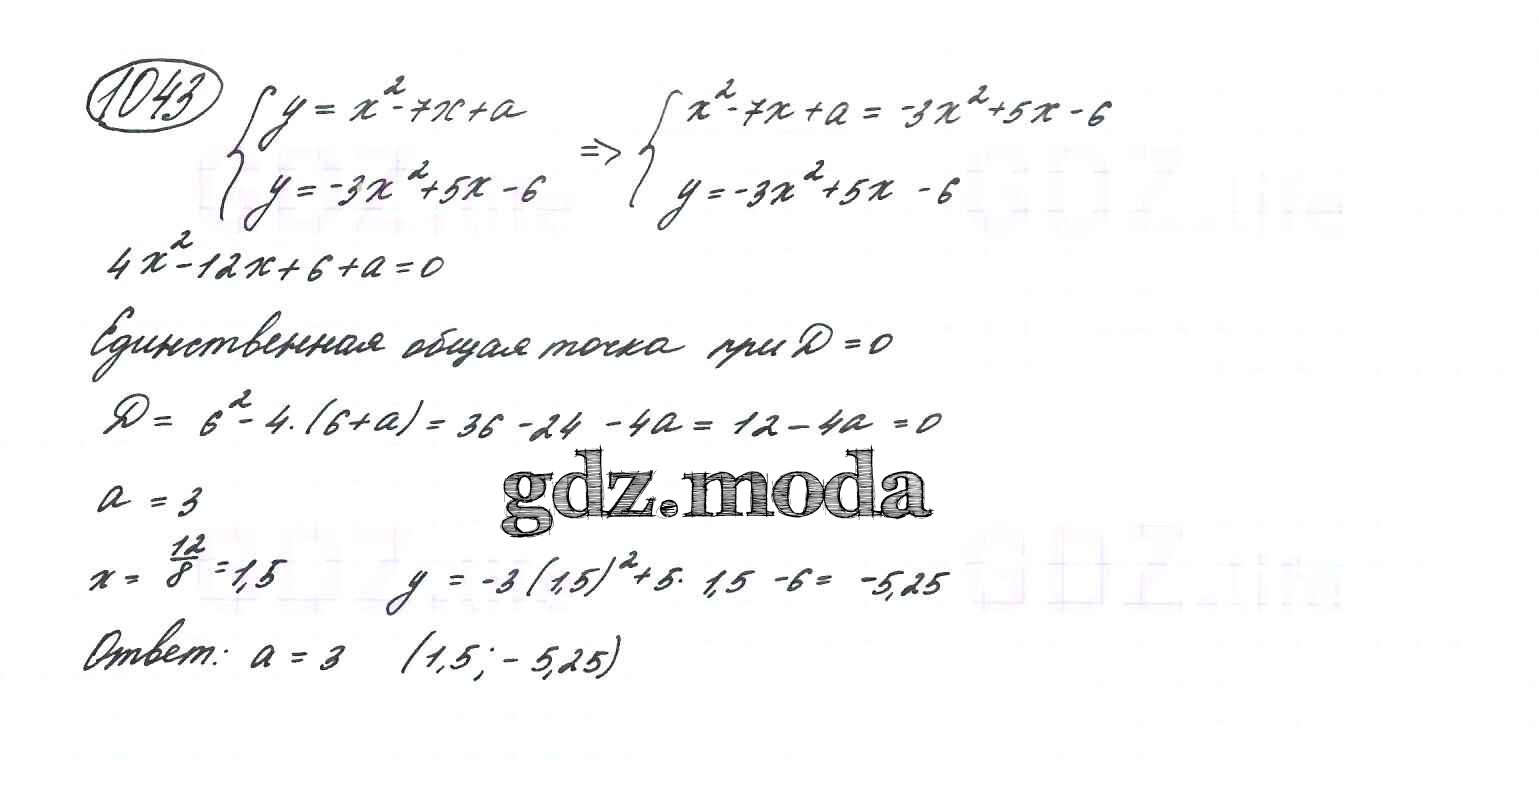 1043 { y = x² - 7x + a => { x² - 7x + a = -3x² + 5x - 6
y = -3x² + 5x - 6 y = -3x² + 5x - 6
4x² - 12x + 6 + a = 0
Единственная общая точка при D = 0
D = 6² - 4·(6 + a) = 36 - 24 - 4a = 12 - 4a = 0
gdz.moda
a = 3
x = 12/8 = 1,5 y = -3(1,5)² + 5·1,5 - 6 = -5,25
Ответ: a = 3 (1,5; -5,25)